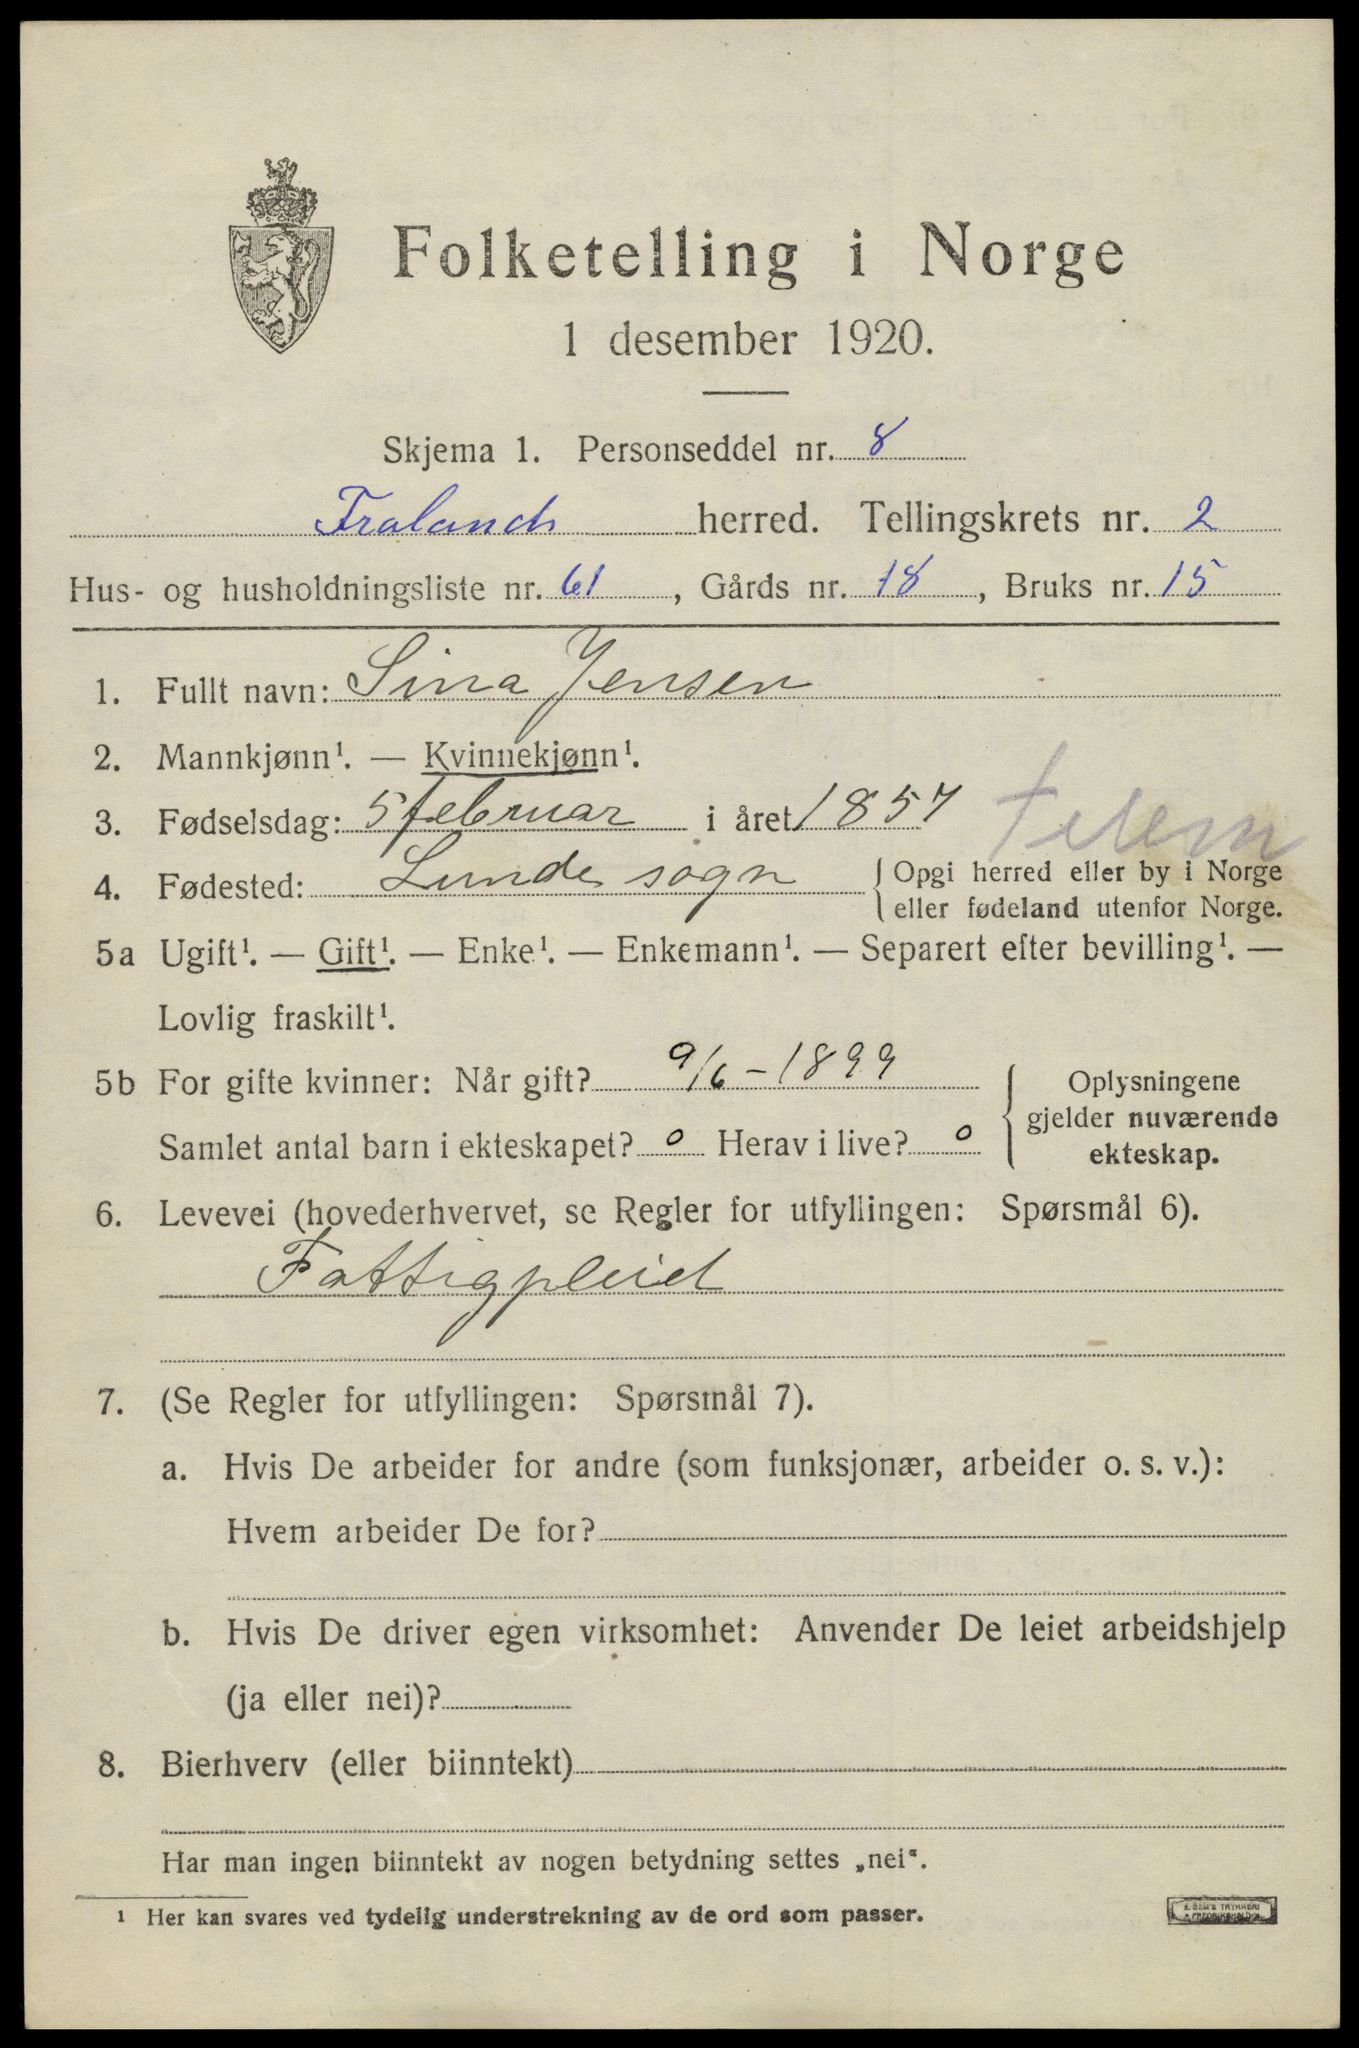 Folketelling i Norge
1 desember 1920.
Skjema 1. Personseddel nr. 8
Froland herred. Tellingskrets nr. 2
Hus- og husholdningsliste nr. 61, Gårds nr. 18, Bruks nr. 15
1. Fullt navn: Sina Jensen
2. Mannkjønn¹. — Kvinnekjønn¹.
3. Fødselsdag: 5 februar i året 1857
Telem
4. Fødested: Lunde sogn {Opgi herred eller by i Norge
eller fødeland utenfor Norge.
5a Ugift¹. — Gift¹. — Enke¹. — Enkemann¹. — Separert efter bevilling¹. —
Lovlig fraskilt¹.
5b For gifte kvinner: Når gift? 9/6 - 1899
Samlet antal barn i ekteskapet? 0 Herav i live? 0
Oplysningene
gjelder nuværende
ekteskap.
6. Levevei (hovederhvervet, se Regler for utfyllingen: Spørsmål 6).
Fattigpleid
7. (Se Regler for utfyllingen: Spørsmål 7).
a. Hvis De arbeider for andre (som funksjonær, arbeider o. s. v.):
Hvem arbeider De for?
b. Hvis De driver egen virksomhet: Anvender De leiet arbeidshjelp
(ja eller nei)?
8. Bierhverv (eller biinntekt)
Har man ingen biinntekt av nogen betydning settes „nei".
¹ Her kan svares ved tydelig understrekning av de ord som passer.
E. SEM'S TRYKKERI
FREDRIKSHALD